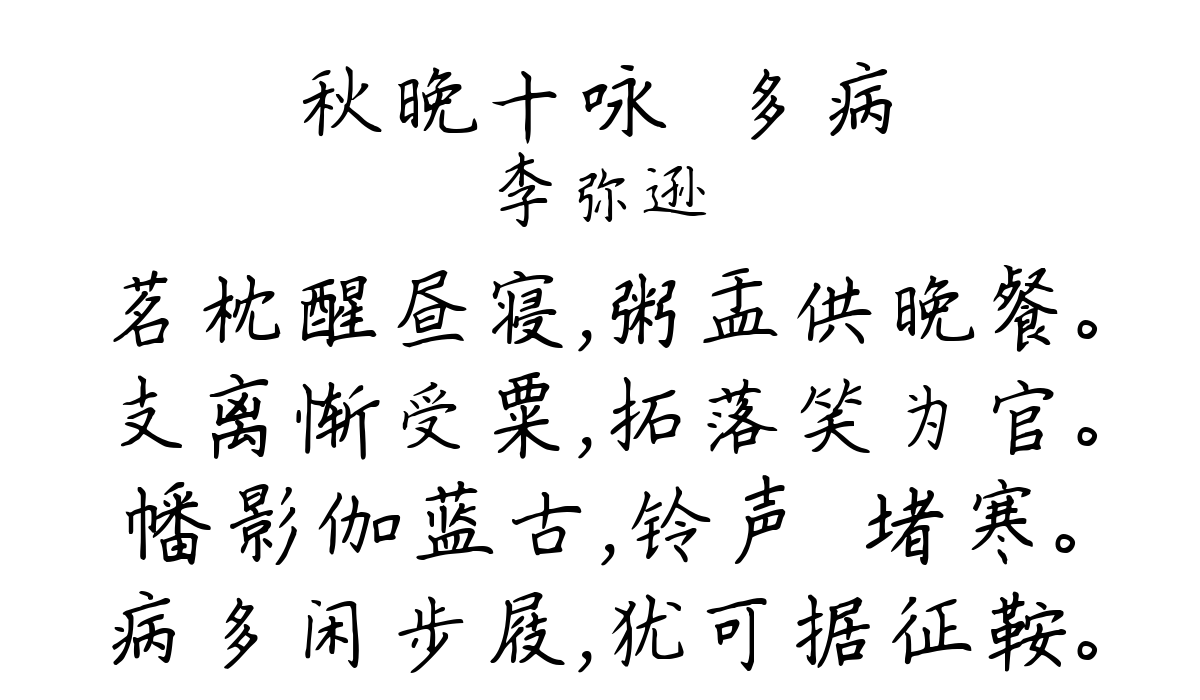 秋晚十咏 多病
李弥逊
茗枕醒昼寝,粥盂供晚餐。
支离惭受粟,拓落笑为官。
幡影伽蓝古,铃声 堵寒。
病多闲步屐,犹可据征鞍。